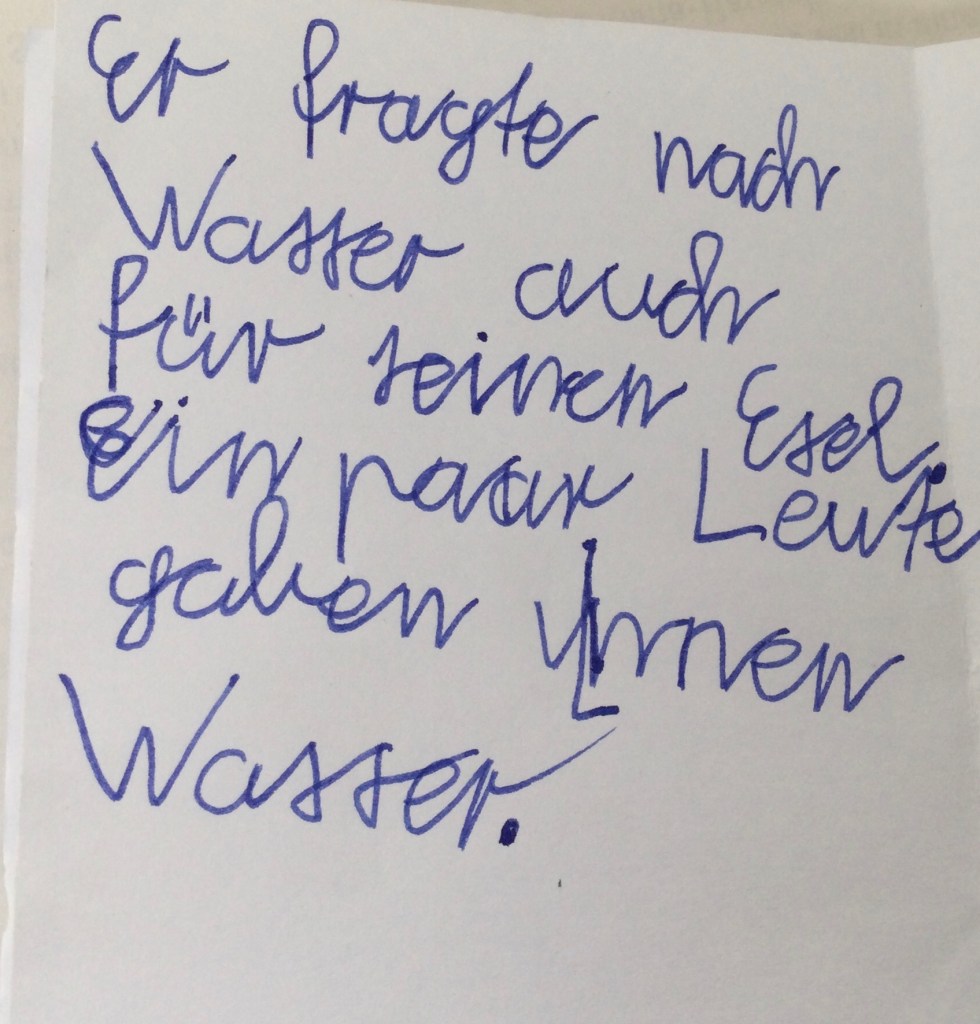 Er fragte nach
Wasser auch
für seinen Esel.
Ein paar Leute
gaben Innen
Wasser.